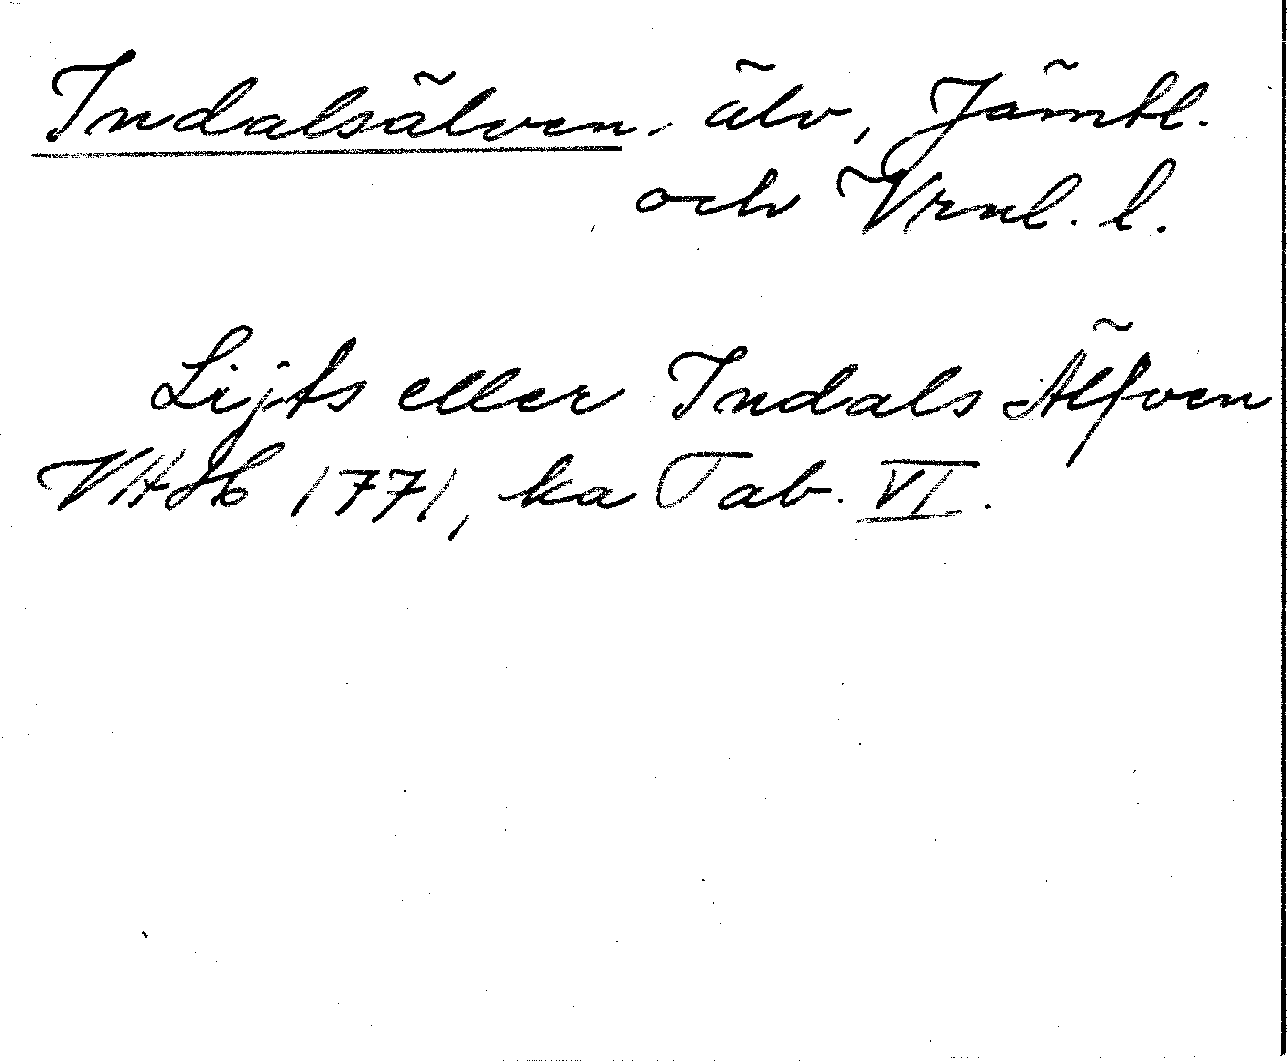 Indalsälven, älv, Jämtl.
och Vrnl. l.
Lijts eller Indals Älfven
VHAH 1771, ka Tab. VI.